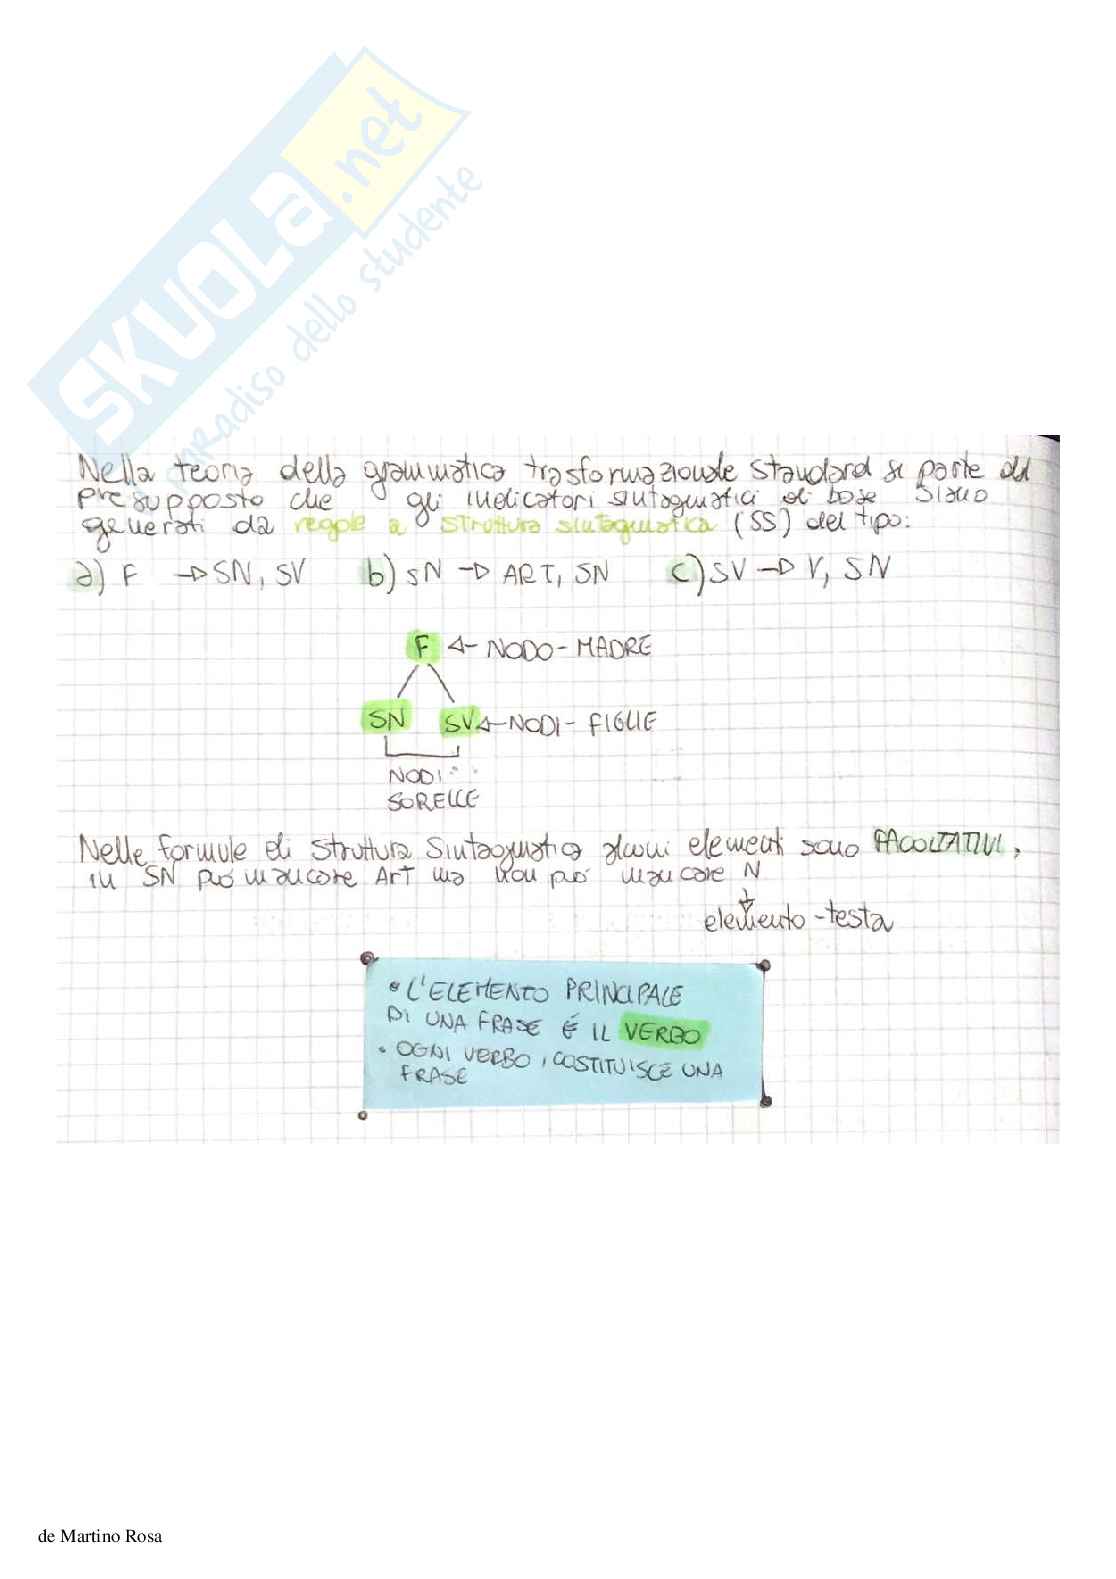 SKUOLA.net
paradiso dello studente
Nella teoria della grammatica trasformazionale standard si parte dal
presupposto che gli indicatori sintagmatici di base siano
generati da regole a struttura sintagmatica (SS) del tipo:
a) F → SN, SV b) SN → ART, SN c) SV → V, SN
F ← NODO - MADRE
SN SV ← NODI - FIGLIE
NODI
SORELLE
Nelle formule di struttura Sintagmatica alcuni elementi sono FACOLTATIVI,
in SN può mancare Art ma non può mancare N
elemento - testa
• L'ELEMENTO PRINCIPALE
DI UNA FRASE É IL VERBO
• OGNI VERBO, COSTITUISCE UNA
FRASE
de Martino Rosa